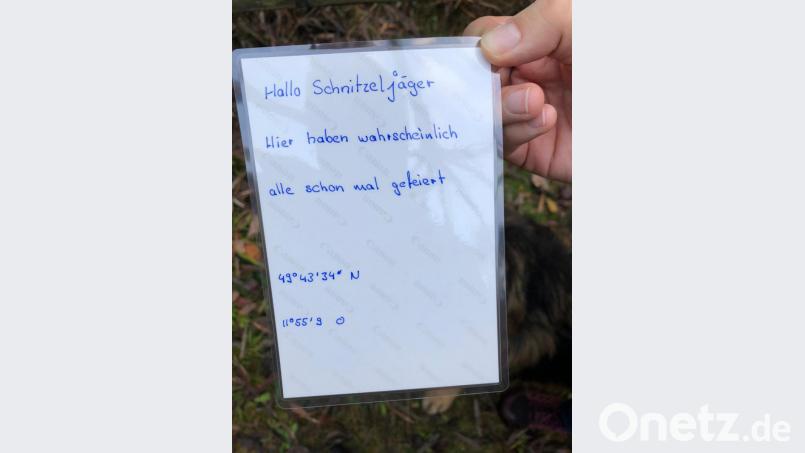 Hallo Schnitzeljäger
Hier haben wahrscheinlich
alle schon mal gefeiert
49°43'34" N
11°55'9 O
Onetz.de